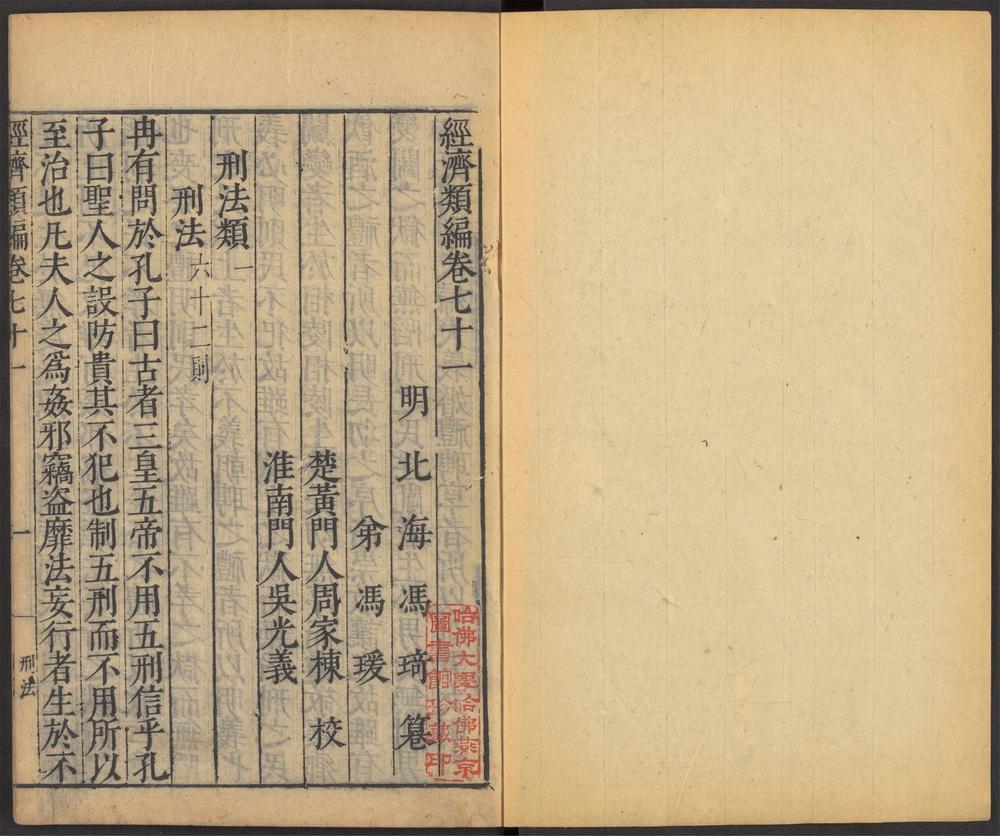 經濟類編卷七十一
明北海馮琦纂
弟馮瑗
楚黃門人周家棟校
淮南門人吳光義
刑法類一
刑法六十二則
冉有問於孔子曰古者三皇五帝不用五刑信乎孔
子曰聖人之設防貴其不犯也制五刑而不用所以
至治也凡夫人之爲姦邪竊盜靡法妄行者生於不
經濟類編卷七十一
一
刑法
哈佛大學哈佛燕京
圖書館珍藏印